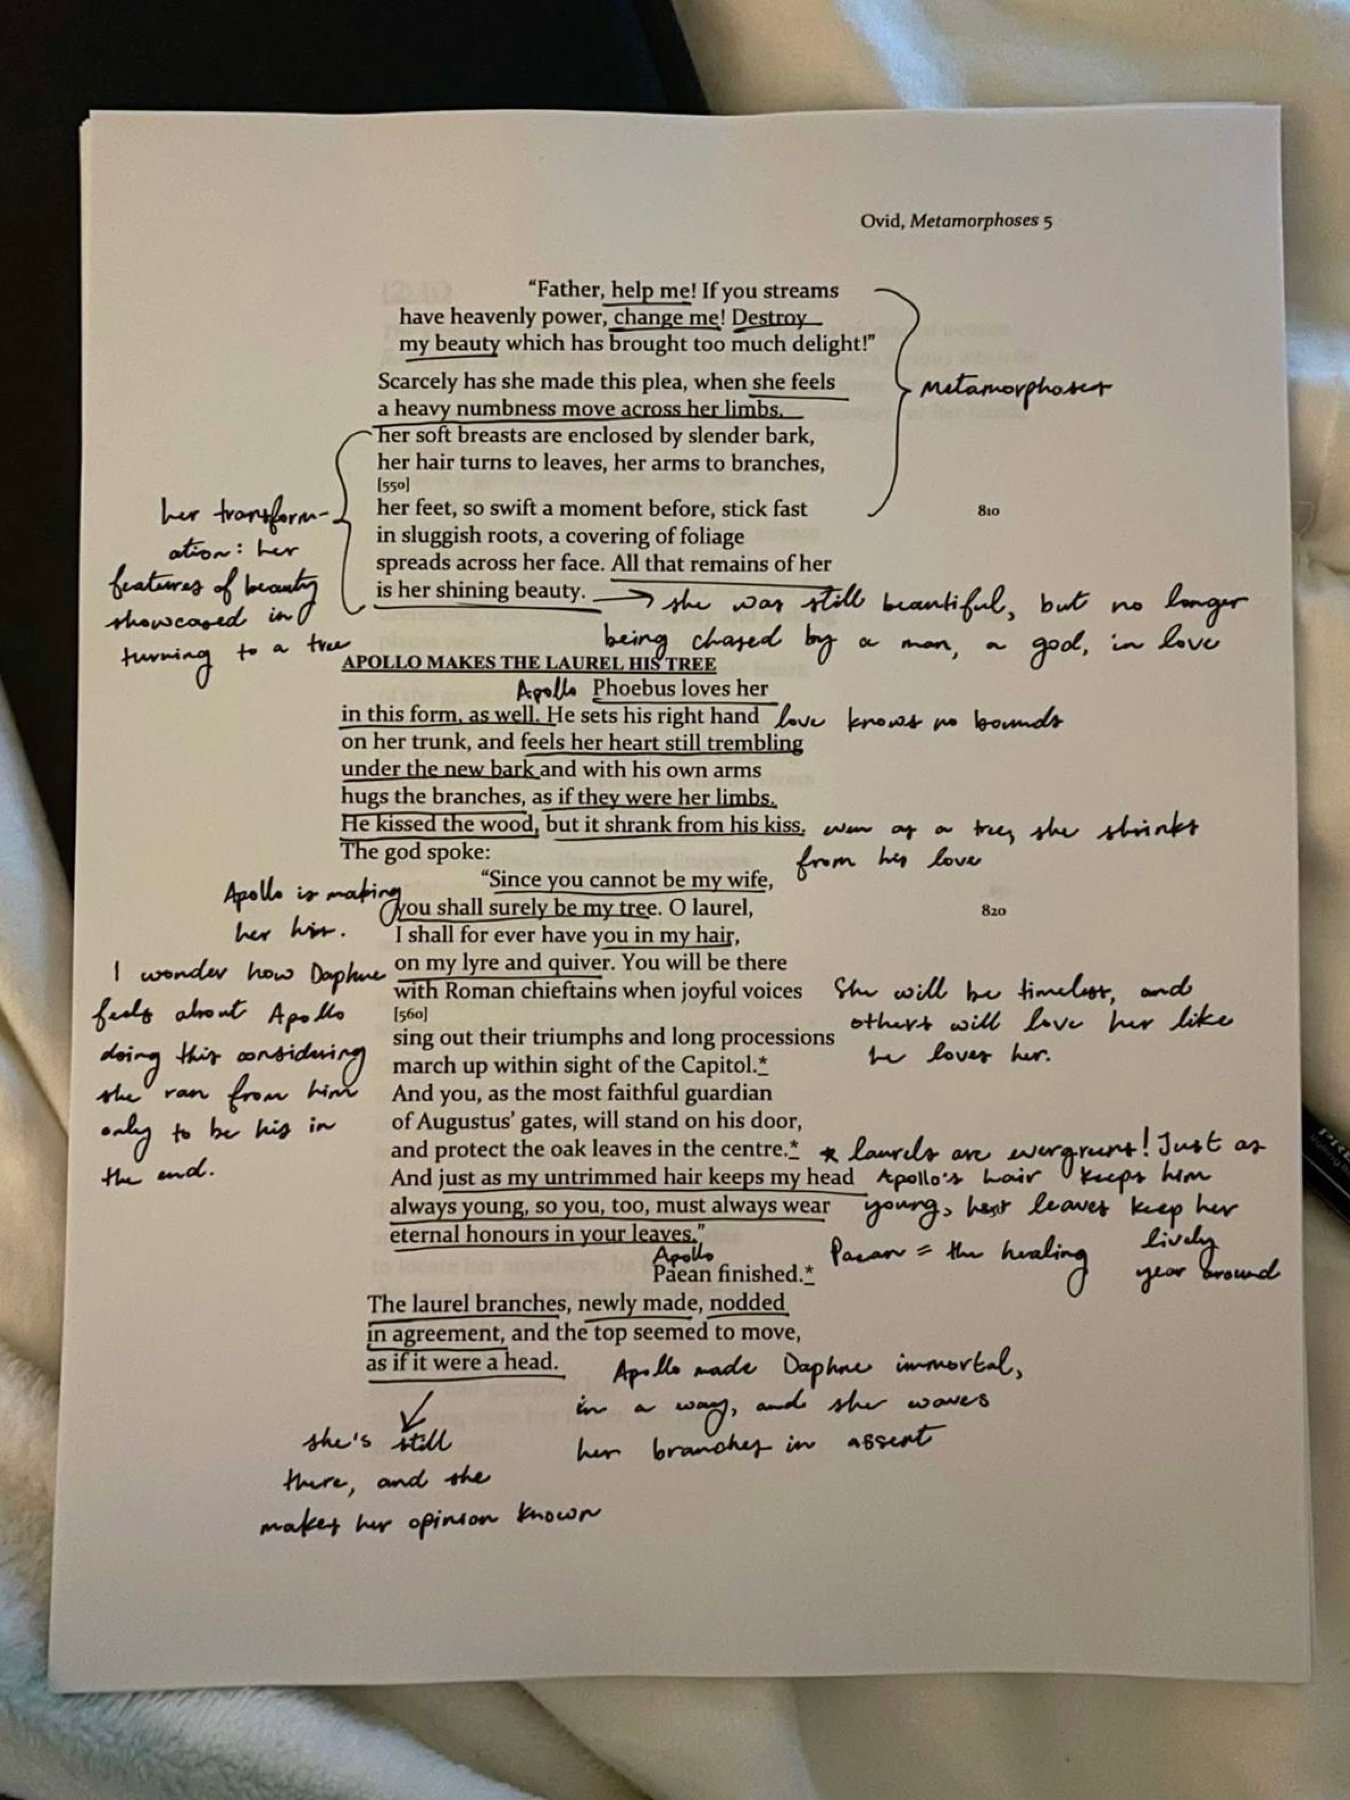 Ovid, Metamorphoses 5
“Father, help me! If you streams
have heavenly power, change me! Destroy
my beauty which has brought too much delight!”
Metamorphoses
Scarcely has she made this plea, when she feels
a heavy numbness move across her limbs.
her soft breasts are enclosed by slender bark,
her hair turns to leaves, her arms to branches,
[550]
her feet, so swift a moment before, stick fast
810
in sluggish roots, a covering of foliage
spreads across her face. All that remains of her
is her shining beauty.
her transform-
ation: her
features of beauty
showcased in
turning to a tree
she was still beautiful, but no longer
being chased by a man, a god, in love
APOLLO MAKES THE LAUREL HIS TREE
Apollo
Phoebus loves her
in this form, as well. He sets his right hand
love knows no bounds
on her trunk, and feels her heart still trembling
under the new bark and with his own arms
hugs the branches, as if they were her limbs.
He kissed the wood, but it shrank from his kiss.
even as a tree, she shrinks
from his love
The god spoke:
“Since you cannot be my wife,
you shall surely be my tree. O laurel,
820
I shall for ever have you in my hair,
on my lyre and quiver. You will be there
with Roman chieftains when joyful voices
[560]
sing out their triumphs and long processions
march up within sight of the Capitol.*
And you, as the most faithful guardian
of Augustus’ gates, will stand on his door,
and protect the oak leaves in the centre.*
And just as my untrimmed hair keeps my head
always young, so you, too, must always wear
eternal honours in your leaves.”
Apollo is making
her his.
I wonder how Daphne
feels about Apollo
doing this considering
she ran from him
only to be his in
the end.
She will be timeless, and
others will love her like
he loves her.
* laurels are evergreens! Just as
Apollo's hair keeps him
young, her leaves keep her
lively
year around
Apollo
Paean finished.*
Paean = the healing
The laurel branches, newly made, nodded
in agreement, and the top seemed to move,
as if it were a head.
Apollo made Daphne immortal,
in a way, and she waves
her branches in assent
she's still
there, and she
makes her opinion known